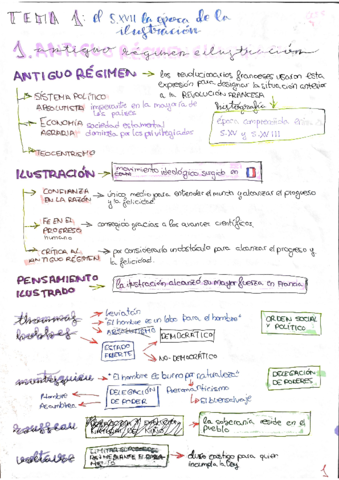 TEMA 1: el S.XVIII la época de la
ilustración
1. Antiguo régimen e ilustración
ANTIGUO RÉGIMEN → los revolucionarios franceses usaron esta
expresión para designar la situación anterior
a REVOLUCIÓN FRANCESA
→ SISTEMA POLÍTICO
ABSOLUTISTA imperante en la mayoría de
los países
historiografía
época comprendida entre
S.XV y S.XVIII
→ ECONOMÍA
AGRARIA
sociedad estamental
domina por los privilegiados
→ TEOCENTRISMO
ILUSTRACIÓN → movimiento ideológico surgido en
→ CONFIANZA
EN LA RAZÓN
→ único medio para entender el mundo y alcanzar el progreso
y la felicidad
→ FE EN EL
PROGRESO
humano
→ conseguido gracias a los avances científicos
→ CRÍTICA AL
ANTIGUO RÉGIMEN
→ por considerarlo un obstáculo para alcanzar el progreso y
la felicidad.
PENSAMIENTO
ILUSTRADO
→ la ilustración alcanzó su mayor fuerza en Francia
thommas
hobbes
→ Leviatán
→ "El hombre es un lobo para el hombre"
→ ABSOLUTISMO
ORDEN SOCIAL
Y POLÍTICO
ESTADO
FUERTE
DEMOCRÁTICO
NO-DEMOCRÁTICO
montesquieu → "El hombre es bueno por naturaleza"
DELEGACIÓN
DE PODERES.
Hombre
Asamblea
DELEGACIÓN
DE PODER
Prerromanticismo
El buen salvaje
rousseau
→ la soberanía reside en el
pueblo
voltaire
LIMITAR EL PODER
→ duro castigo para quien
incumpla la ley
1